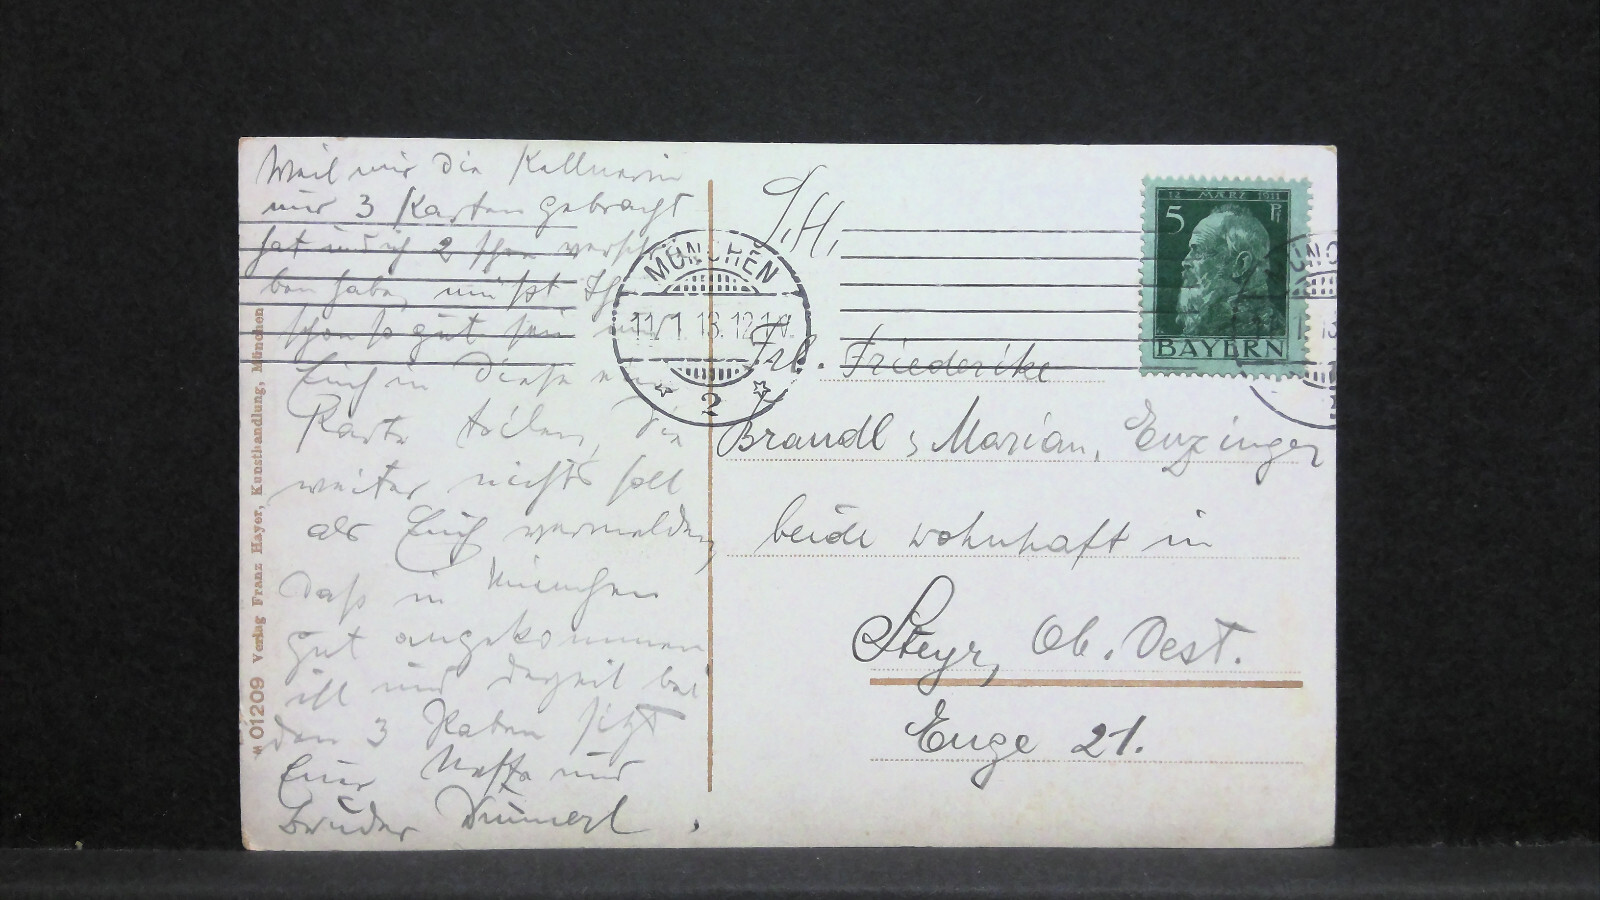 Weil mir die Kellnerin
nur 3 Karten gebracht
hat und ich 2 schon verschrie
ben habe, müsst Ihr
schon so gut sein und
Euch in diese eine
Karte teilen, die
weiter nichts soll
als Euch vermelden,
daß in München
gut angekommen
ist und derzeit bei
den 3 Raben sitzt
Euer Neffe und
Bruder
MÜNCHEN
11/1 13. 12-1 N.
2
14. MÄRZ 1911
5 Pf
BAYERN
Frl. Friederike
Brandl, Marian, Enzinger
beide wohnhaft in
Steyr, Ob. Oest.
Enge 21.
01209 Verlag Franz Hayer, Kunsthandlung, München